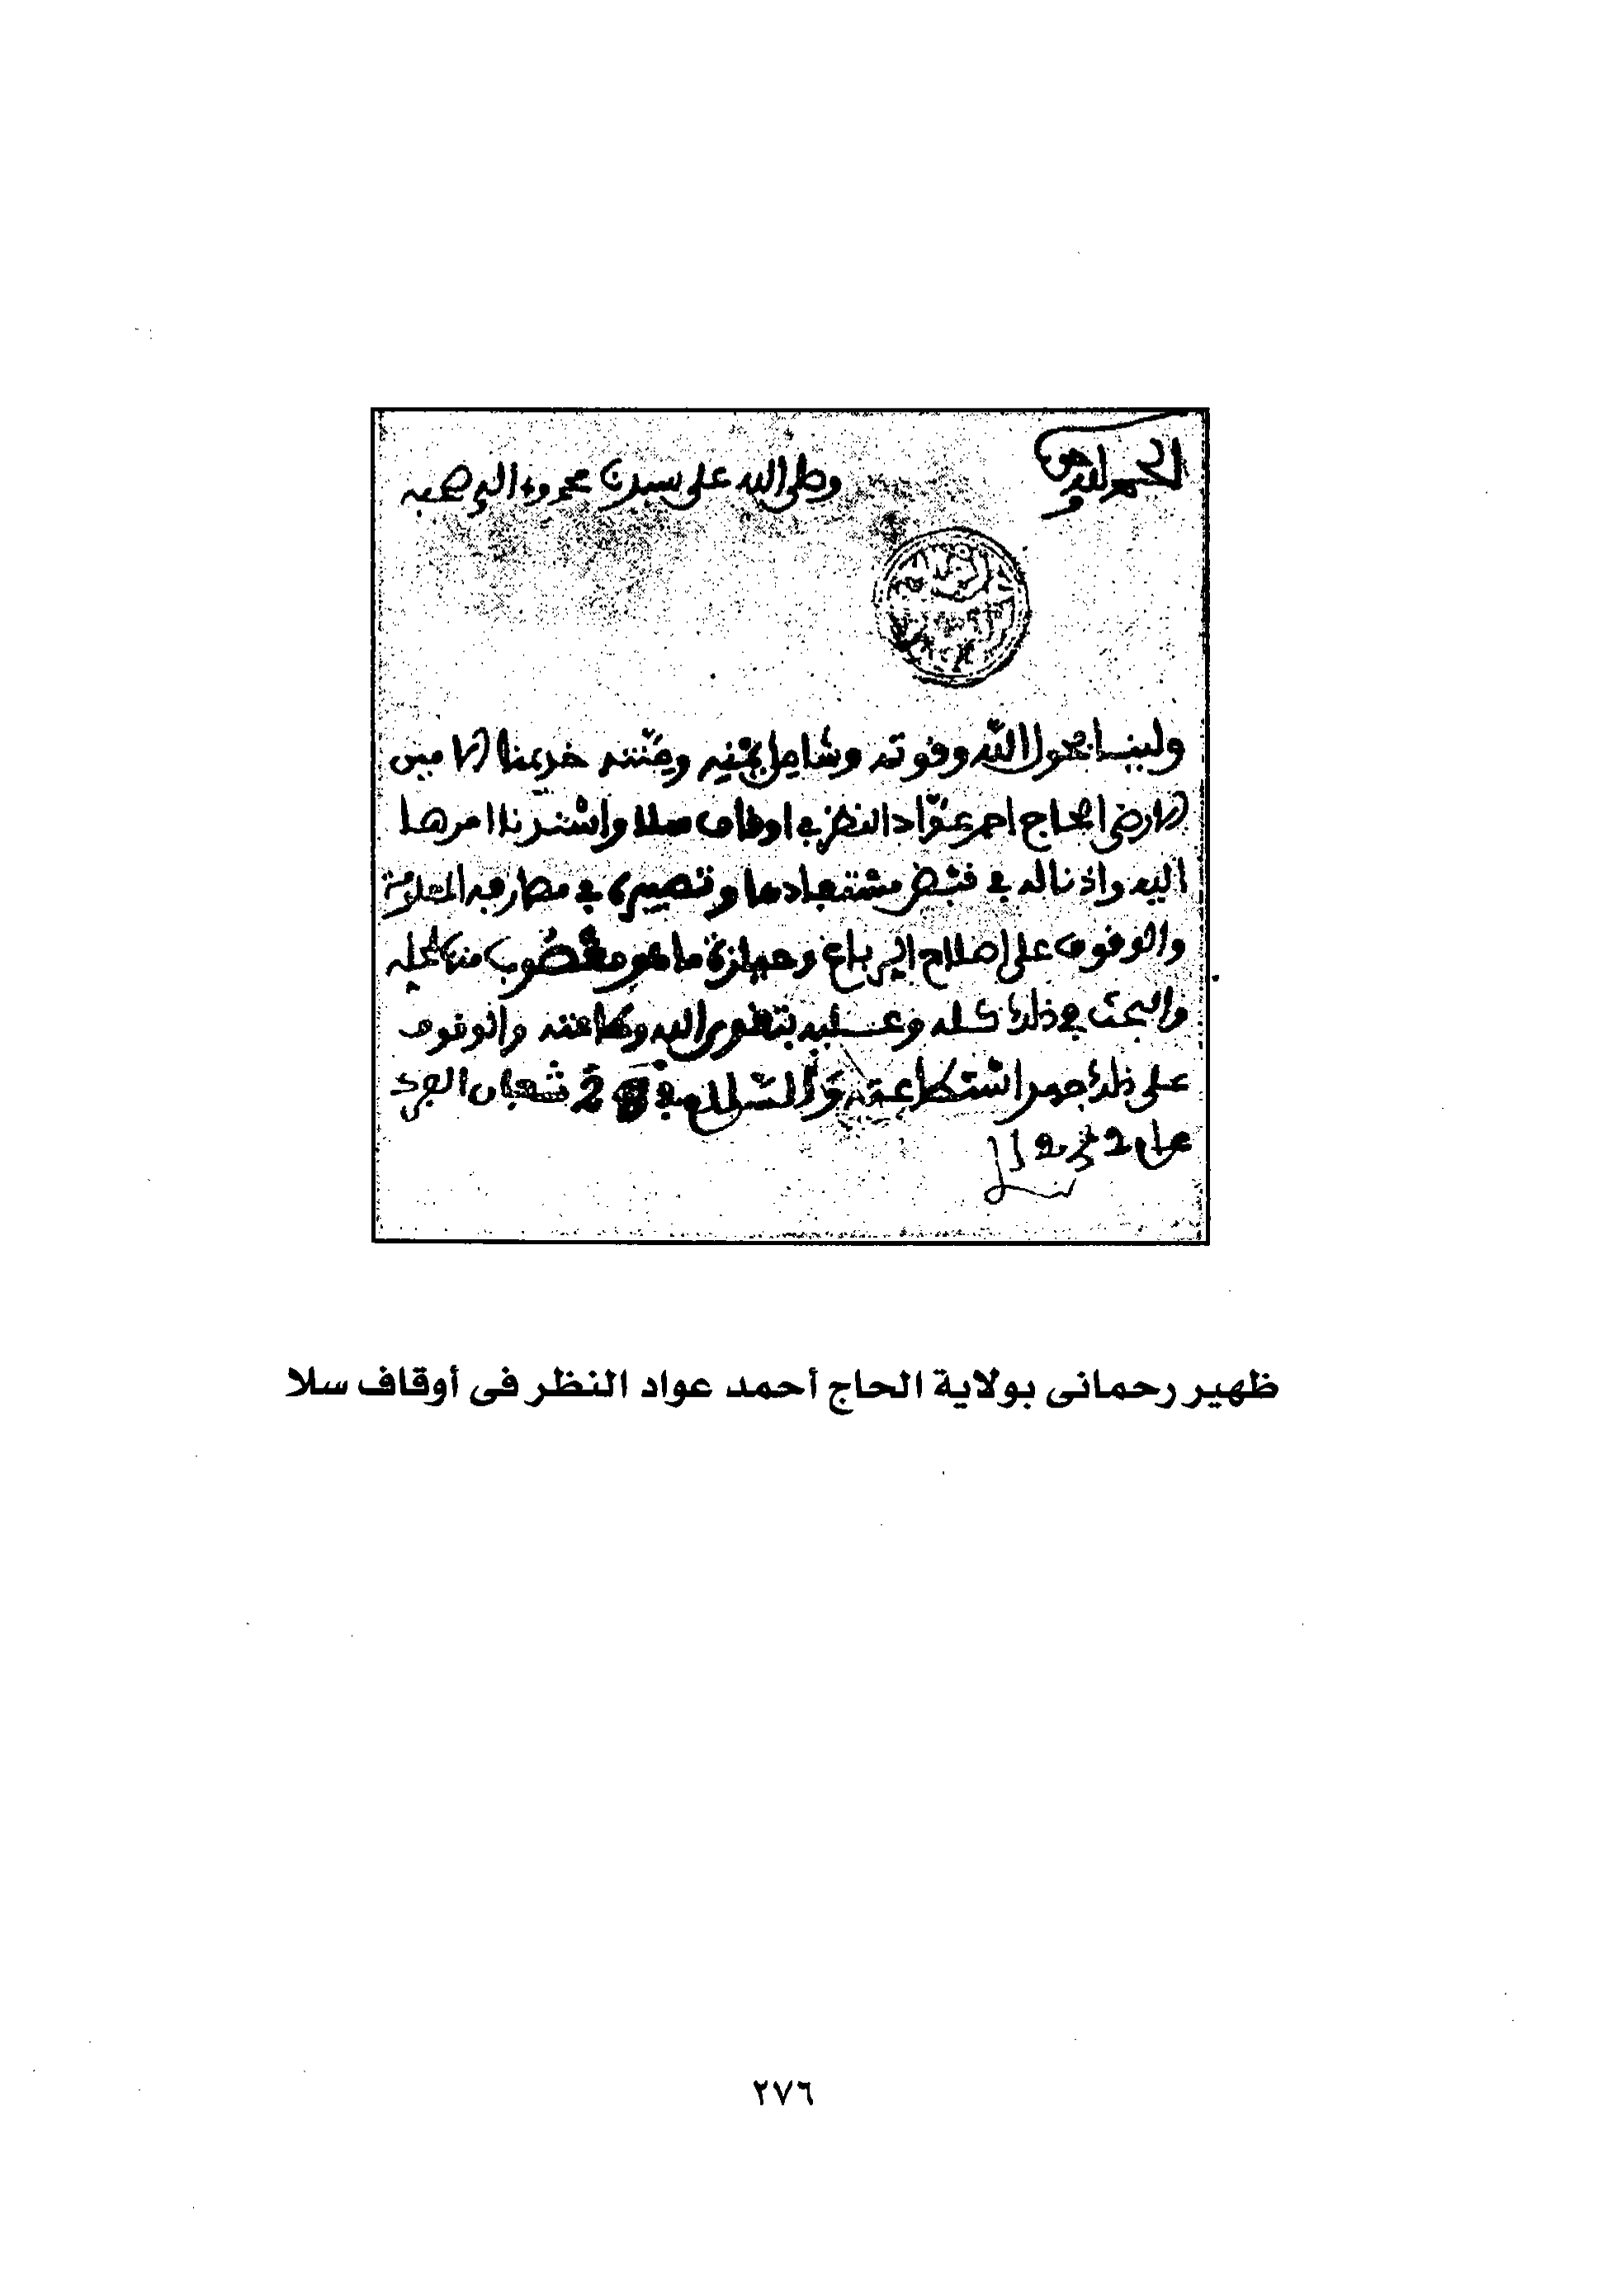 الحمد لله وحده
وصلى الله على سيدنا محمد وءاله وصحبه
ولينا بحول الله وقوته وشامل يمنه ومنته خديمنا الامين
الارضى الحاج احمد عواد النظر في اوقاف سلا واسندنا امرها
اليه واذنا له في قبض مستفادها وتصييره في مصارفه المعلومة
والوقوف على اصلاح الرباع وحيازة ما هو مغصوب منها لمحله
والبحث في ذلك كله وعليه بتقوى الله وطاعته والوقوف
على ذلك جهد استطاعته والسلام في شعبان
عام
ظهير رحمانى بولاية الحاج أحمد عواد النظر فى أوقاف سلا
٢٧٦